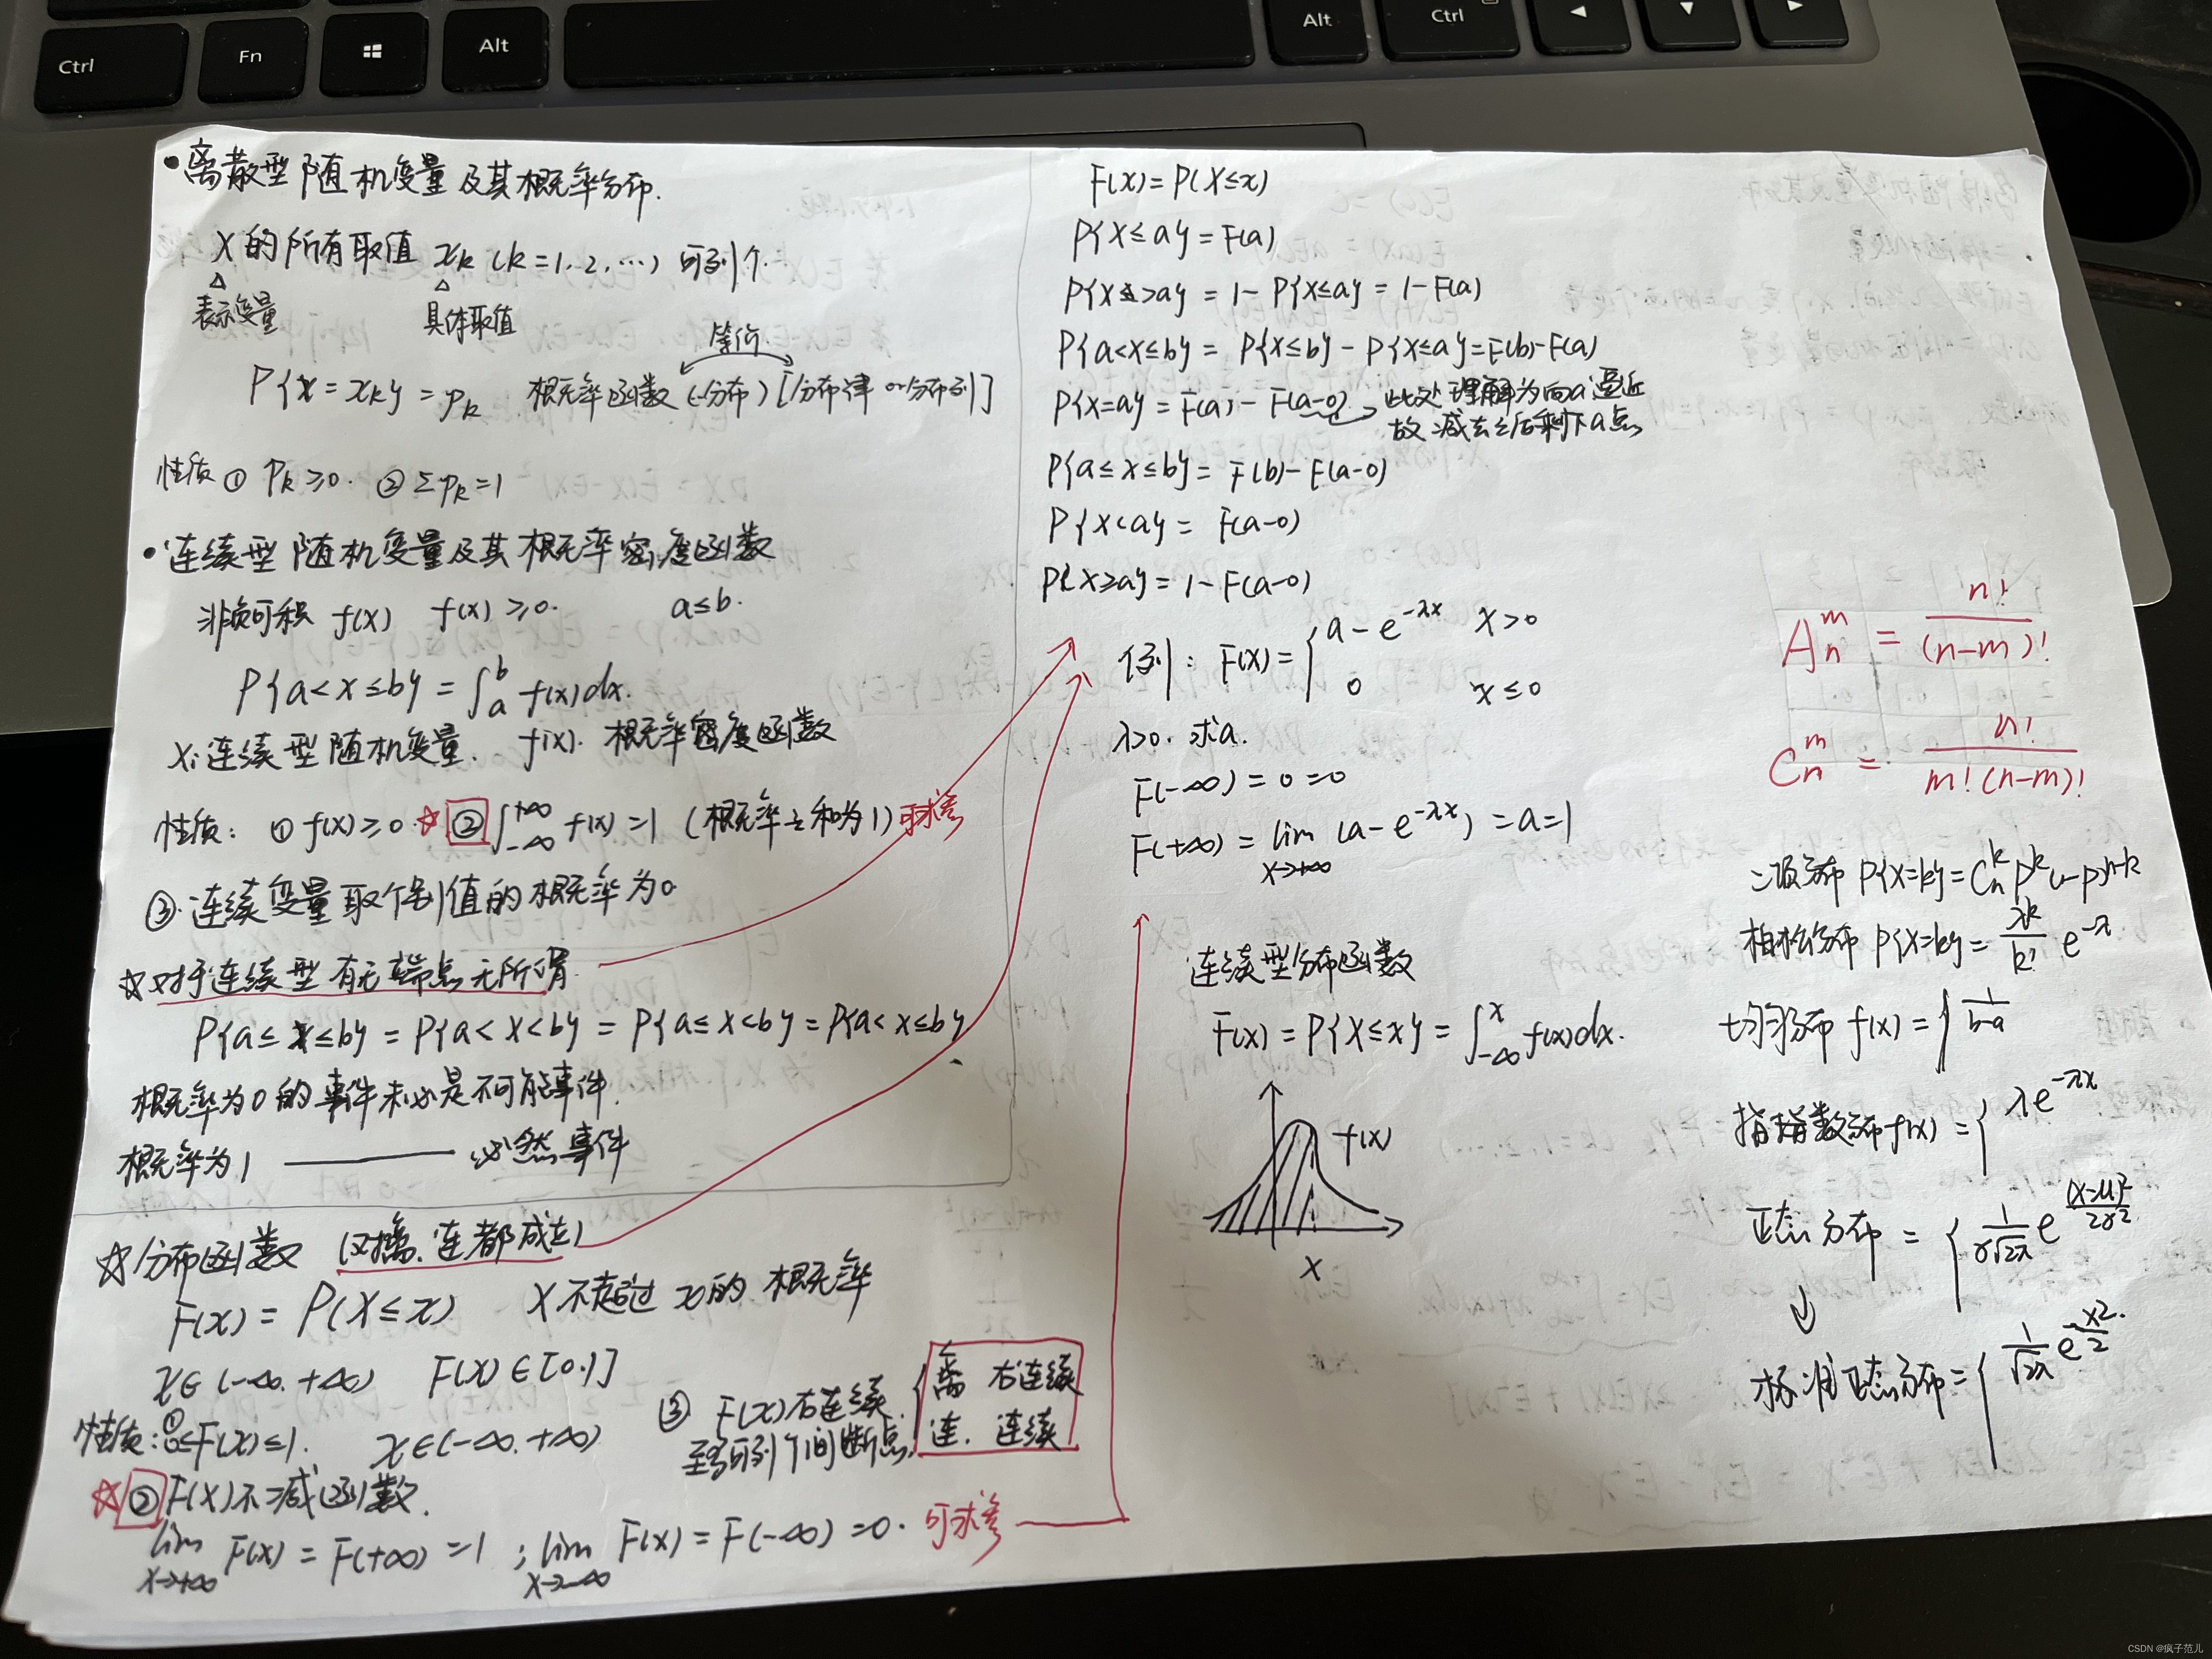 Ctrl
Fn
Alt
Alt
Ctrl
• 离散型随机变量及其概率分布.
X的所有取值 xk (k=1.2.…) 可列个.
表示变量 具体取值
等价
P{X=xk}=pk 概率函数(分布)[分布律 or 分布列]
性质 ① Pk≥0. ② Σpk=1
• 连续型随机变量及其概率密度函数
非负可积 f(x) f(x)≥0. a≤b.
P{a<x≤b}=∫_a^b f(x)dx.
X:连续型随机变量. f(x).概率密度函数
性质: ① f(x)≥0 ☆②∫_{-∞}^{+∞} f(x)=1 (概率之和为1) 可求参
③.连续变量取个别值的概率为0.
☆对于连续型有无端点无所谓.
P{a≤x≤b}=P{a<x<b}=P{a≤x<b}=P{a<x≤b}
概率为0的事件未必是不可能事件.
概率为1 —— 必然事件
☆分布函数 (对离.连都成立)
F(x)=P(X≤x) X不超过x的概率
x∈(-∞.+∞) F(x)∈[0.1]
性质:①0≤F(x)≤1. x∈(-∞.+∞)
☆②F(x)不减函数.
lim x→+∞ F(x)=F(+∞)=1 ; lim x→-∞ F(x)=F(-∞)=0. 可求参
③ F(x)右连续.
至多可列个间断点.
离 右连续
连. 连续
F(x)=P(X≤x)
P{X≤a}=F(a)
P{X>a}=1-P{X≤a}=1-F(a)
P{a<X≤b}=P{X≤b}-P{X≤a}=F(b)-F(a)
P{X=a}=F(a)-F(a-0) → 此处理解为向a逼近
故减去之后剩下a点
P{a≤x≤b}=F(b)-F(a-0)
P{X<a}=F(a-0)
P{X≥a}=1-F(a-0)
例: F(x)={ a-e^{-λx} x>0
0 x≤0
λ>0. 求a.
F(-∞)=0=0
F(+∞)=lim x→+∞ (a-e^{-λx})=a=1
连续型分布函数
F(x)=P{X≤x}=∫_{-∞}^x f(x)dx.
f(x)
X
A_n^m = n!/(n-m)!
C_n^m = n!/m!(n-m)!
二项分布 P{X=k}=C_n^k P^k (1-P)^{n-k}
柏松分布 P{X=k}=λ^k/k! e^{-λ}
均匀分布 f(x)={ 1/b-a
指数分布 f(x)={ λe^{-λx}
正态分布 = { 1/σ√2π e^{(x-μ)²/2σ²}
↓
标准正态分布={ 1/√2π e^{-x²/2}
CSDN @疯子范儿